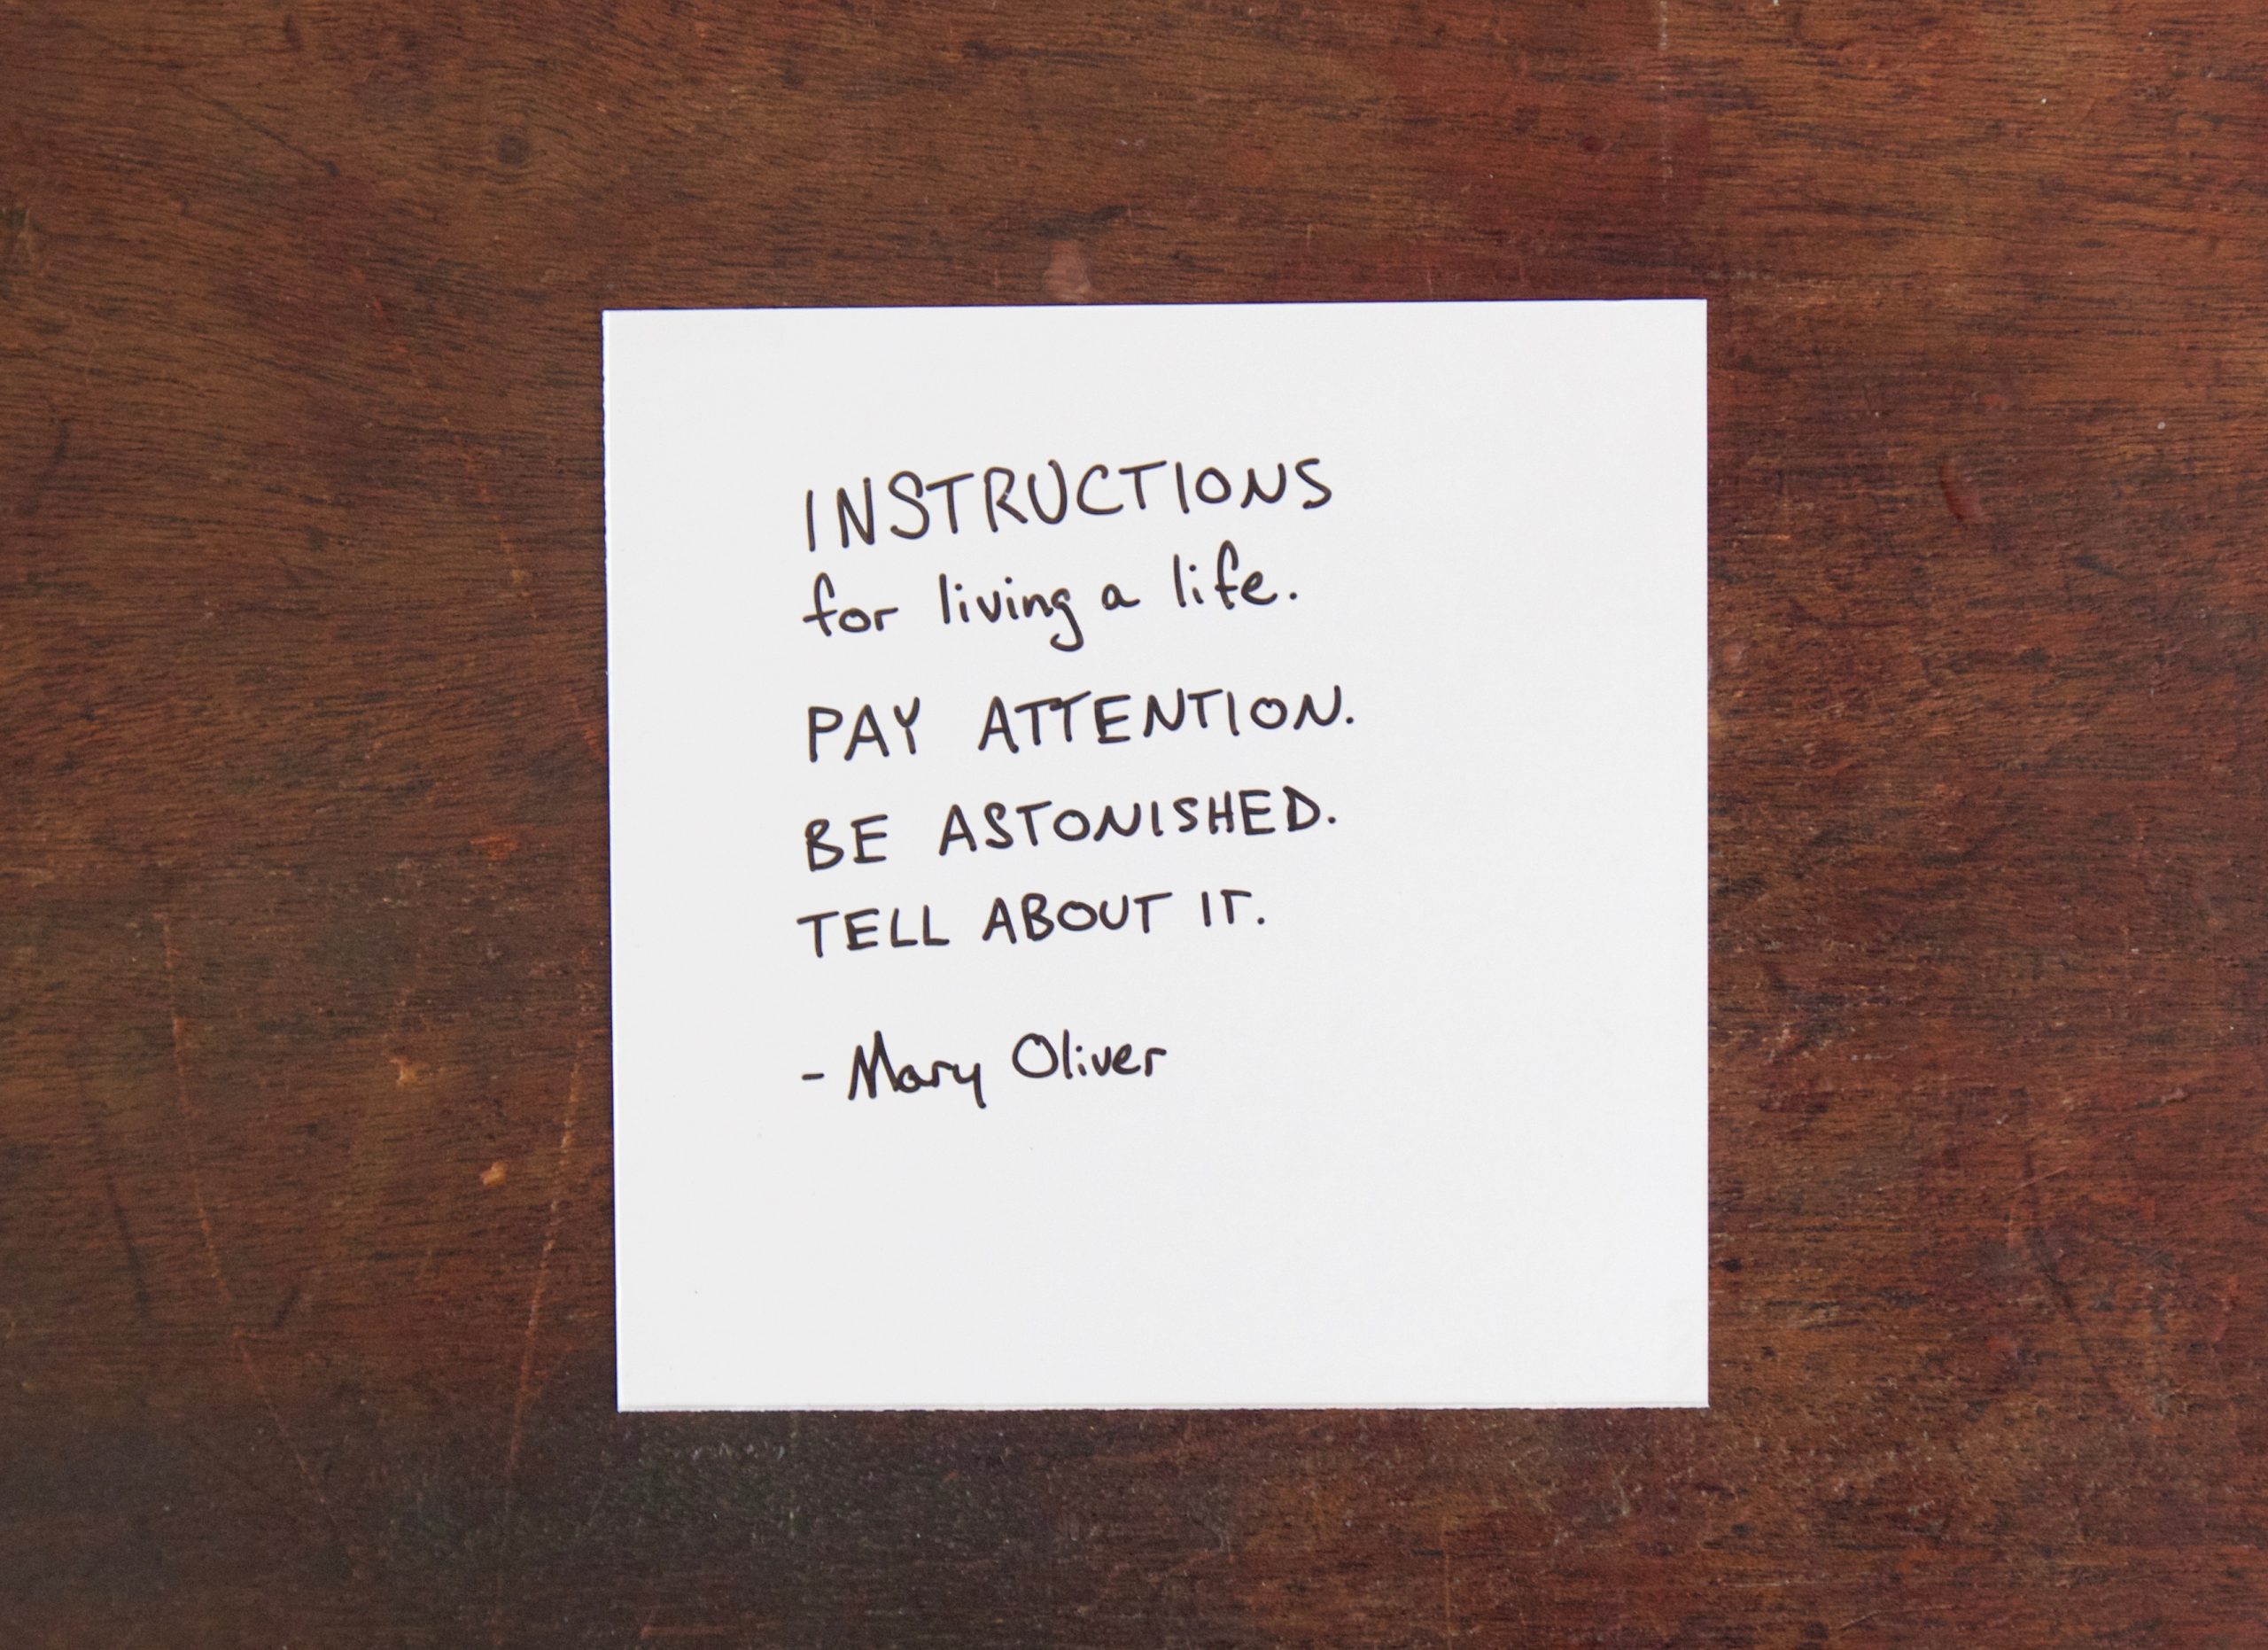 INSTRUCTIONS
for living a life.
PAY ATTENTION.
BE ASTONISHED.
TELL ABOUT IT.
- Mary Oliver